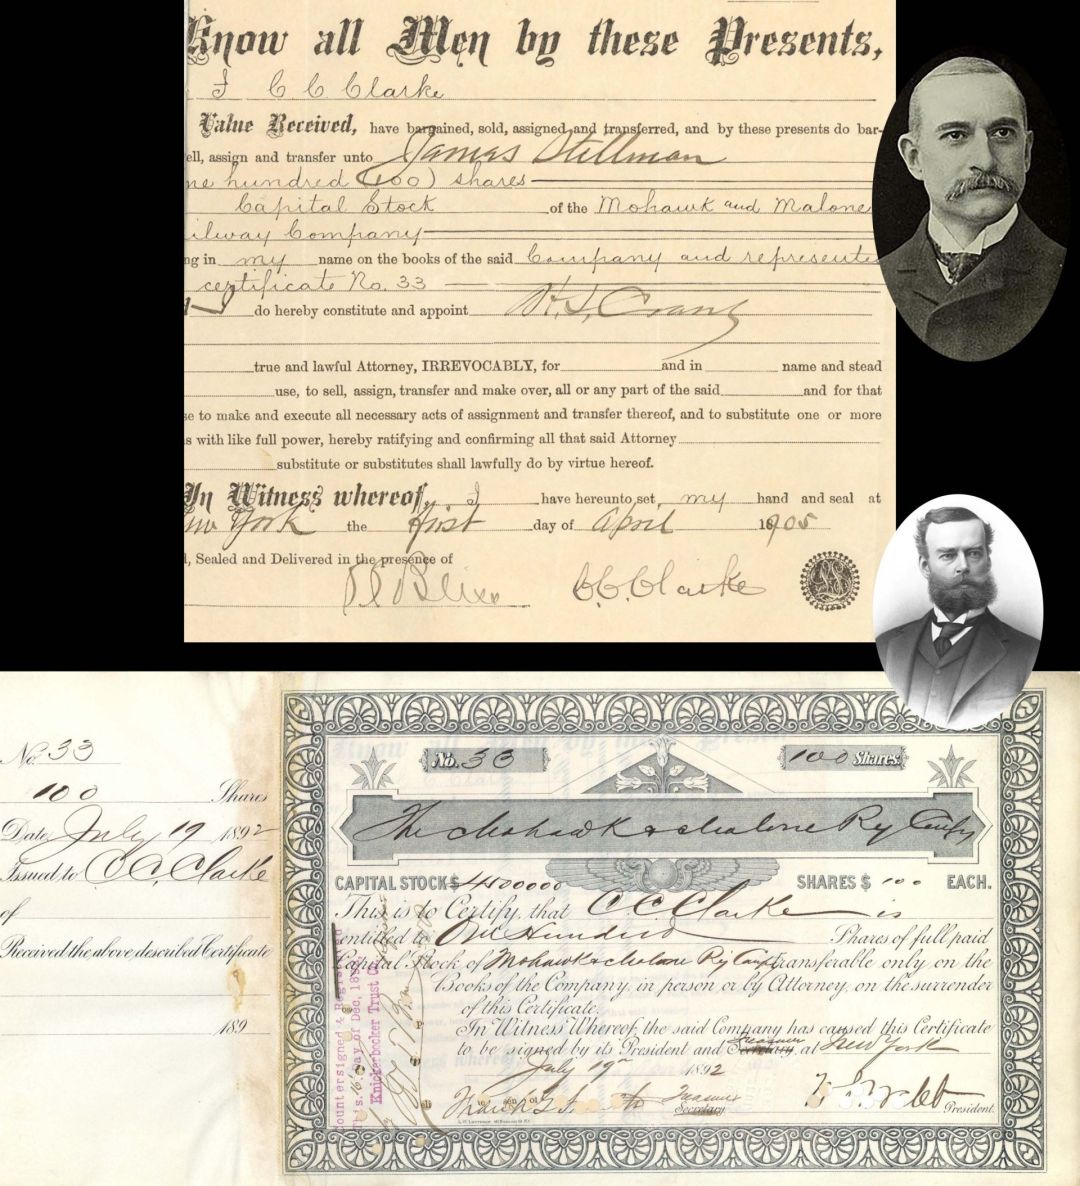 Know all Men by these Presents,
I C C Clarke
Value Received, have bargained, sold, assigned and transferred, and by these presents do bar-
ell, assign and transfer unto James Stillman
ne hundred (100) shares
Capital Stock of the Mohawk and Malone
ilway Company
ng in my name on the books of the said Company and represented
certificate No. 33
I do hereby constitute and appoint
true and lawful Attorney, IRREVOCABLY, for and in name and stead
use, to sell, assign, transfer and make over, all or any part of the said and for that
se to make and execute all necessary acts of assignment and transfer thereof, and to substitute one or more
s with like full power, hereby ratifying and confirming all that said Attorney
substitute or substitutes shall lawfully do by virtue hereof.
In Witness whereof, I have hereunto set my hand and seal at
ew York the first day of April 1905
d, Sealed and Delivered in the presence of
C.C. Clarke
No. 33
100 Shares
Date July 19 1892
Issued to C C Clarke
of
Received the above described Certificate
189
No. 33
100 Shares.
The Mohawk & Malone Ry Compy
CAPITAL STOCK $ 4500000 SHARES $ 100 EACH.
This is to Certify, that C C Clarke is
entitled to One Hundred Shares of full paid
Capital Stock of Mohawk & Malone Ry Compy transferable only on the
Books of the Company, in person or by Attorney, on the surrender
of this Certificate.
In Witness Whereof, the said Company has caused this Certificate
to be signed by its President and Secretary Treasurer at New York
July 19th 1892
Treasurer
Secretary
President.
Countersigned & Registered
this 16 day of Dec, 189
Knickerbocker Trust Co